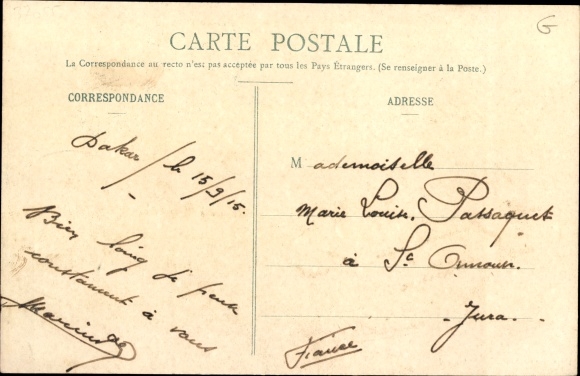 G
CARTE POSTALE
La Correspondance au recto n'est pas acceptée par tous les Pays Étrangers. (Se renseigner à la Poste.)
CORRESPONDANCE
Dakar le 15/9/15.
Bien loin je pense
constamment à vous
ADRESSE
Mademoiselle
Marie Louise Passaquet
à St Amour.
Jura.
France